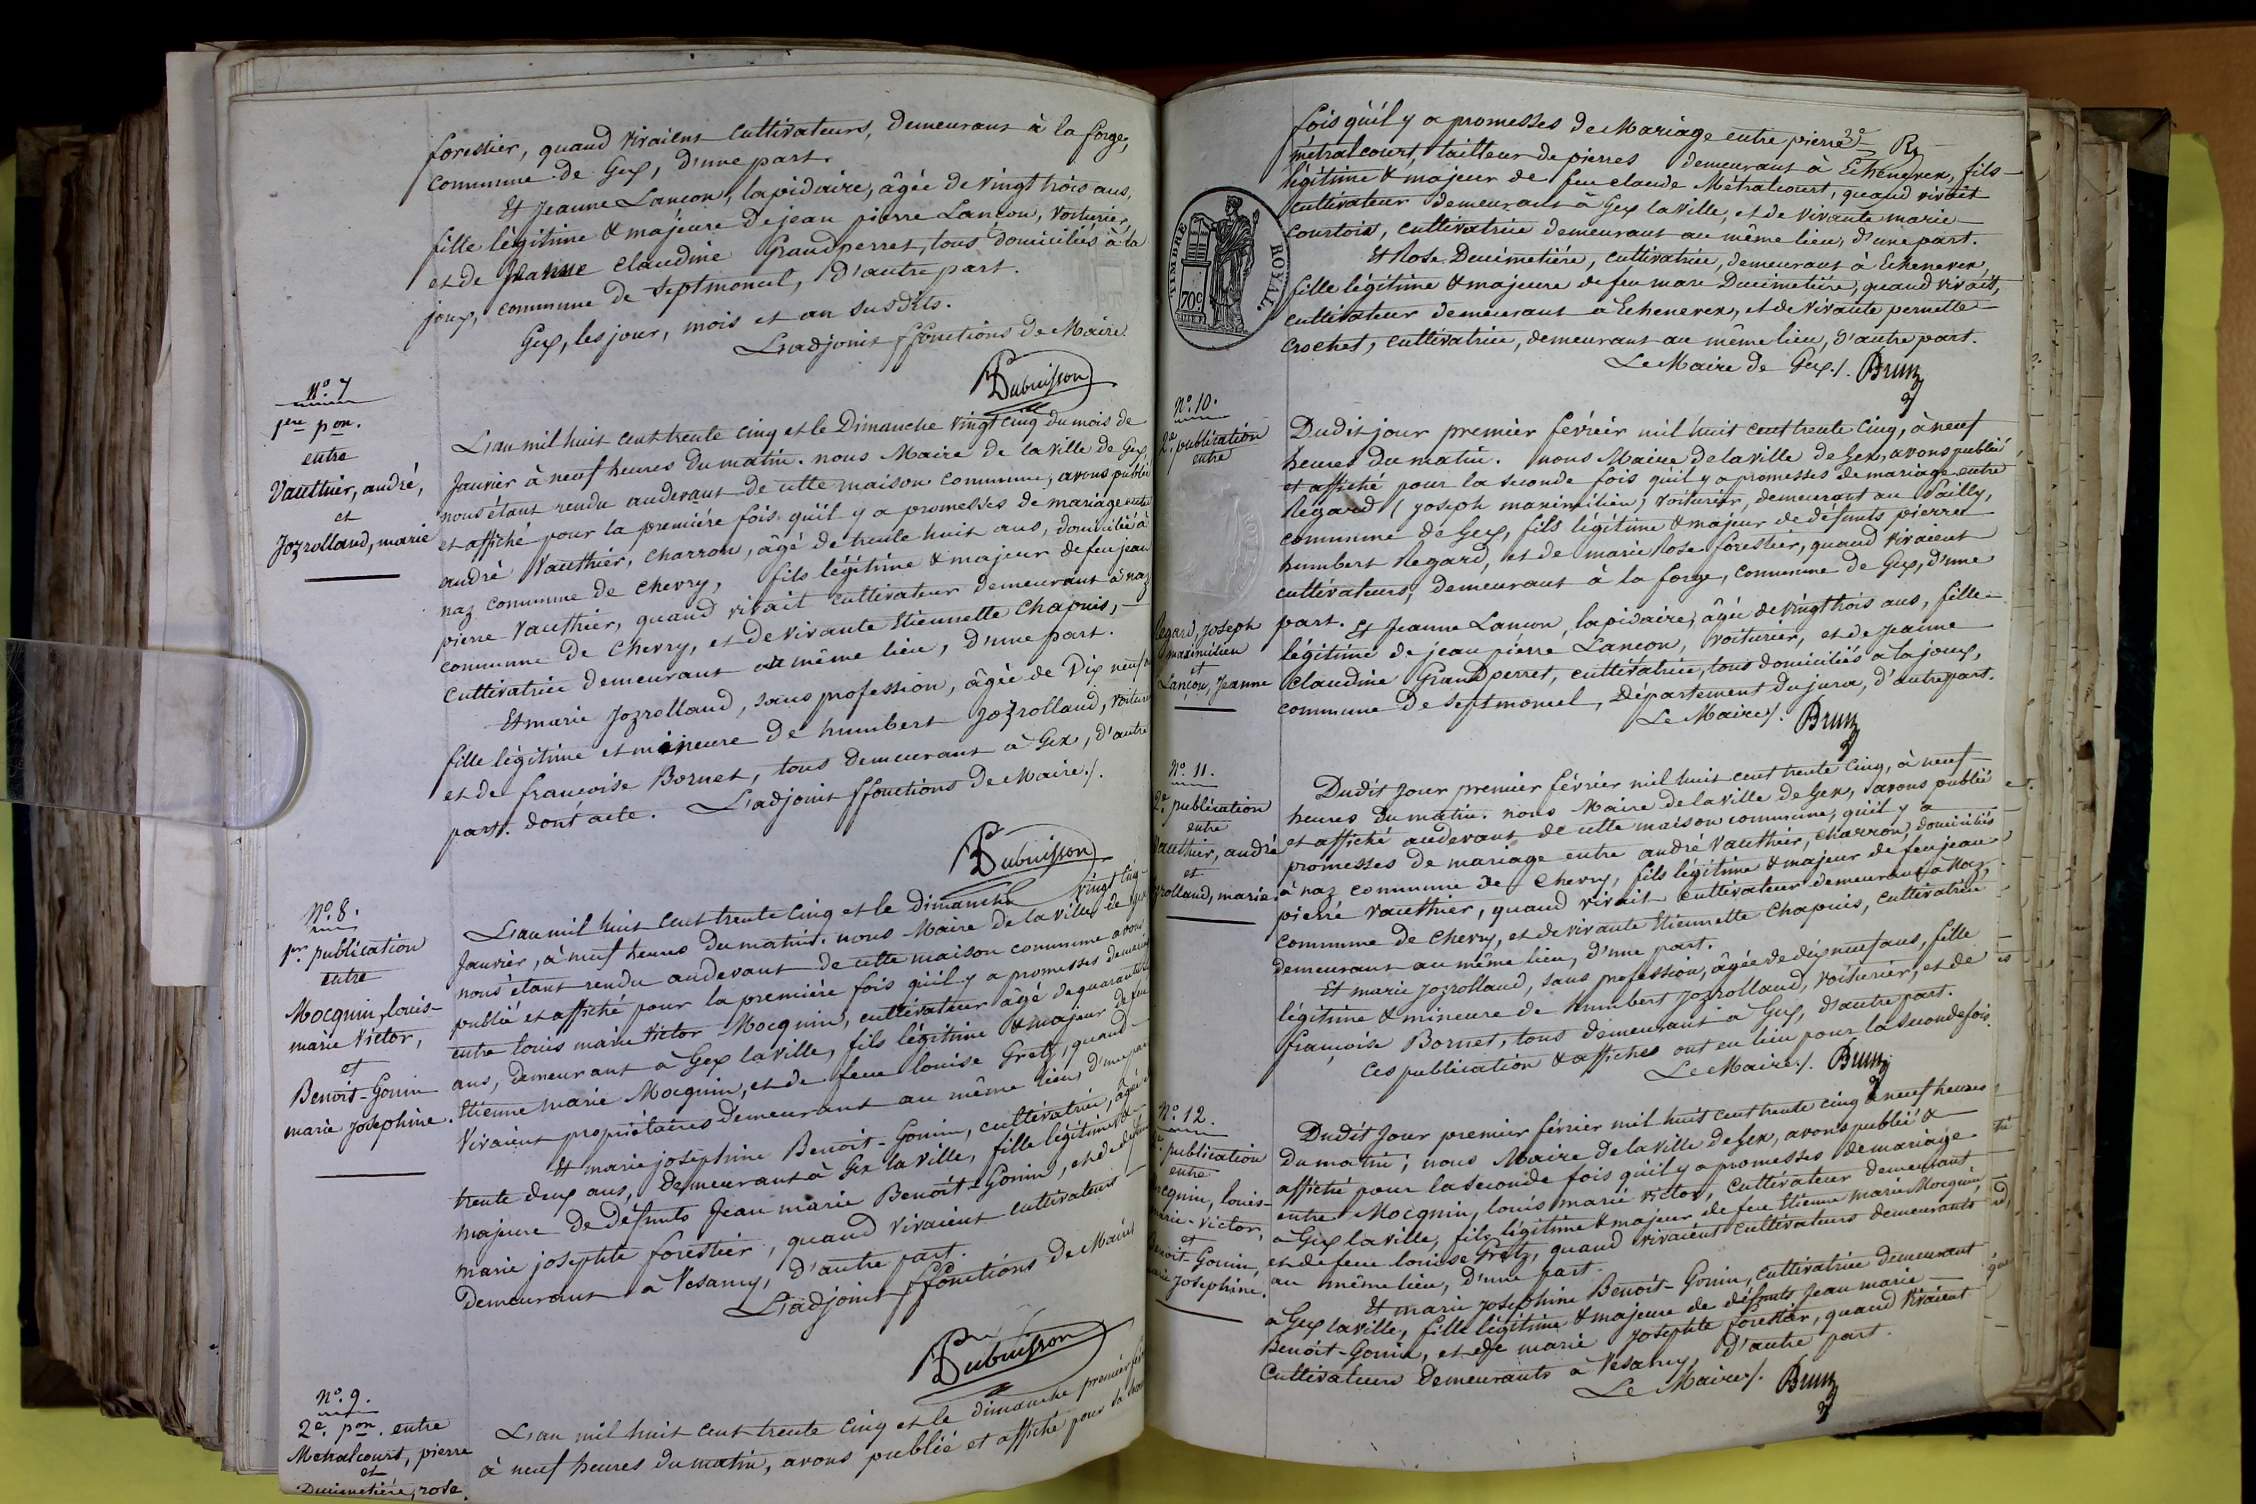 forestier, quand vivaient cultivateurs, demeurant à la forge,
commune de Gex, d'une part.
Et Jeanne Lancon, lapidaire, âgée de vingt trois ans,
fille légitime & majeure de jean pierre Lancon, voiturier,
et de Jeanne claudine Grandperret, tous domiciliés à la
joux, commune de Septmoncel, d'autre part.
Gex, les jour, mois et an susdits.
L'adjoint ffonctions de Maire
Dubuisson
N.º 7
1ere pon.
entre
Vauthier, andré,
et
Jozrolland, marie
L'an mil huit cent trente cinq et le Dimanche vingt cinq du mois de
Janvier à neuf heures du matin. nous Maire de la ville de Gex,
nous étant rendu audevant de cette maison commune, avons publié
et affiché pour la première fois qu'il y a promesses de mariage entre
andré Vauthier, charron, âgé de trente huit ans, domicilié à
naz commune de Chevry, fils légitime & majeur de feu jean
pierre Vauthier, quand vivait cultivateur demeurant à naz
commune de Chevry, et de vivante Etiennette Chapuis,
cultivatrice demeurant au même lieu, d'une part.
Et marie Jozrolland, sans profession, âgée de Dix neuf
fille légitime et mineure de humbert Jozrolland, voiturier
et de francoise Bornet, tous demeurant à Gex, d'autre
part. dont acte. L'adjoint ffonctions de Maire./.
Dubuisson
N.º 8.
1er. publication
entre
Mocquin, louis-
marie Victor,
et
Benoit-Gonin
marie Josephine.
L'an mil huit cent trente cinq et le dimanche vingt cinq
Janvier, à neuf heures du matin. nous Maire de la ville de Gex
nous étant rendu audevant de cette maison commune avons
publié et affiché pour la première fois qu'il y a promesses de mariage
entre louis marie Victor Mocquin, cultivateur âgé de quarante
ans, demeurant à Gex la ville, fils légitime & majeur de feu
Etienne marie Mocquin, et de feue louise Gretz, quand
vivaient propriétaires demeurant au même lieu, d'une part
Et marie joséphine Benoit-Gonin, cultivatrice, âgée
trente deux ans, demeurant à Gex la ville, fille légitime &
majeure de défunts Jean marie Benoit-Gonin, et de
marie josephte forestier, quand vivaient cultivateurs
demeurant à Vesancy, d'autre part.
L'adjoint ffonctions de Maire
Dubuisson
N.º 9.
2e. pon. entre
Metralcourt, pierre
et
Ducimetière, rose.
L'an mil huit cent trente cinq et le dimanche premier
à neuf heures du matin, avons publié et affiché pour la
fois qu'il y a promesses de Mariage entre pierre
métralcourt, tailleur de pierres demeurant à Echenevex, fils
légitime & majeur de feu claude Métralcourt, quand vivait
cultivateur demeurant à Gex la ville, et de vivante marie
courtois, cultivatrice demeurant au même lieu, d'une part.
Et Rose Ducimetière, cultivatrice, demeurant à Echenevex,
fille légitime & majeure de feu marc Ducimetière, quand vivait,
cultivateur demeurant à Echenevex, et de vivante pernette
crochet, cultivatrice, demeurant au même lieu, d'autre part.
Le Maire de Gex./. Brun
TIMBRE ROYAL.
70c
N.º 10.
2.e publication
entre
Regard, Joseph
maximilien
et
Lancon, Jeanne
Dudit jour premier février mil huit cent trente cinq, à neuf
heures du matin. nous Maire de la ville de Gex, avons publié
et affiché pour la seconde fois qu'il y a promesses de mariage entre
Regard (joseph maximilien) voiturier, demeurant au Pailly,
commune de Gex, fils légitime & majeur de défunts pierre
humbert Regard, et de marie Rose forestier, quand vivaient
cultivateurs, demeurant à la forge, commune de Gex, d'une
part. Et Jeanne Lancon, lapidaire, âgée de vingt trois ans, fille
légitime de jean pierre Lancon, voiturier, et de Jeanne
claudine Grandperret, cultivatrice, tous domiciliés à la joux,
commune de Septmoncel, Département du jura, d'autre part.
Le Maire./. Brun
N.º 11.
2.e publication
entre
Vauthier, andré
et
Jozrolland, marie.
Dudit Jour premier février mil huit cent trente cinq, à neuf
heures du matin. nous Maire de la ville de Gex, avons publié
et affiché audevant de cette maison commune, qu'il y a
promesses de mariage entre andré Vauthier, charron, domicilié
à naz commune de Chevry, fils légitime & majeur de feu jean
pierre Vauthier, quand vivait cultivateur demeurant à Naz,
commune de Chevry, et de vivante Etiennette Chapuis, cultivatrice
demeurant au même lieu, d'une part.
Et marie Jozrolland, sans profession, âgée de dix neuf ans, fille
légitime & mineure de humbert Jozrolland, voiturier, et de
françoise Bornet, tous demeurant à Gex, d'autre part.
Ces publication & affiches ont eu lieu pour la seconde fois.
Le Maire./. Brun
N.º 12.
publication
entre
Mocquin, louis-
marie-Victor,
et
Benoit-Gonin,
marie Josephine.
Dudit Jour premier février mil huit cent trente cinq à neuf heures
du matin; nous Maire de la ville de Gex, avons publié &
affiché pour la seconde fois qu'il y a promesses de mariage
entre Mocquin, louis marie victor, cultivateur demeurant
à Gex la ville, fils légitime & majeur de feu Etienne marie Mocquin,
et de feue louise Gretz, quand vivaient cultivateurs demeurants
au même lieu, d'une part.
Et marie josephine Benoit-Gonin, cultivatrice demeurant
à Gex la ville, fille légitime & majeure de défunts Jean marie
Benoit-Gonin, et de marie josephte forestier, quand vivaient
Cultivateurs demeurants à Vesancy, d'autre part.
Le Maire./. Brun